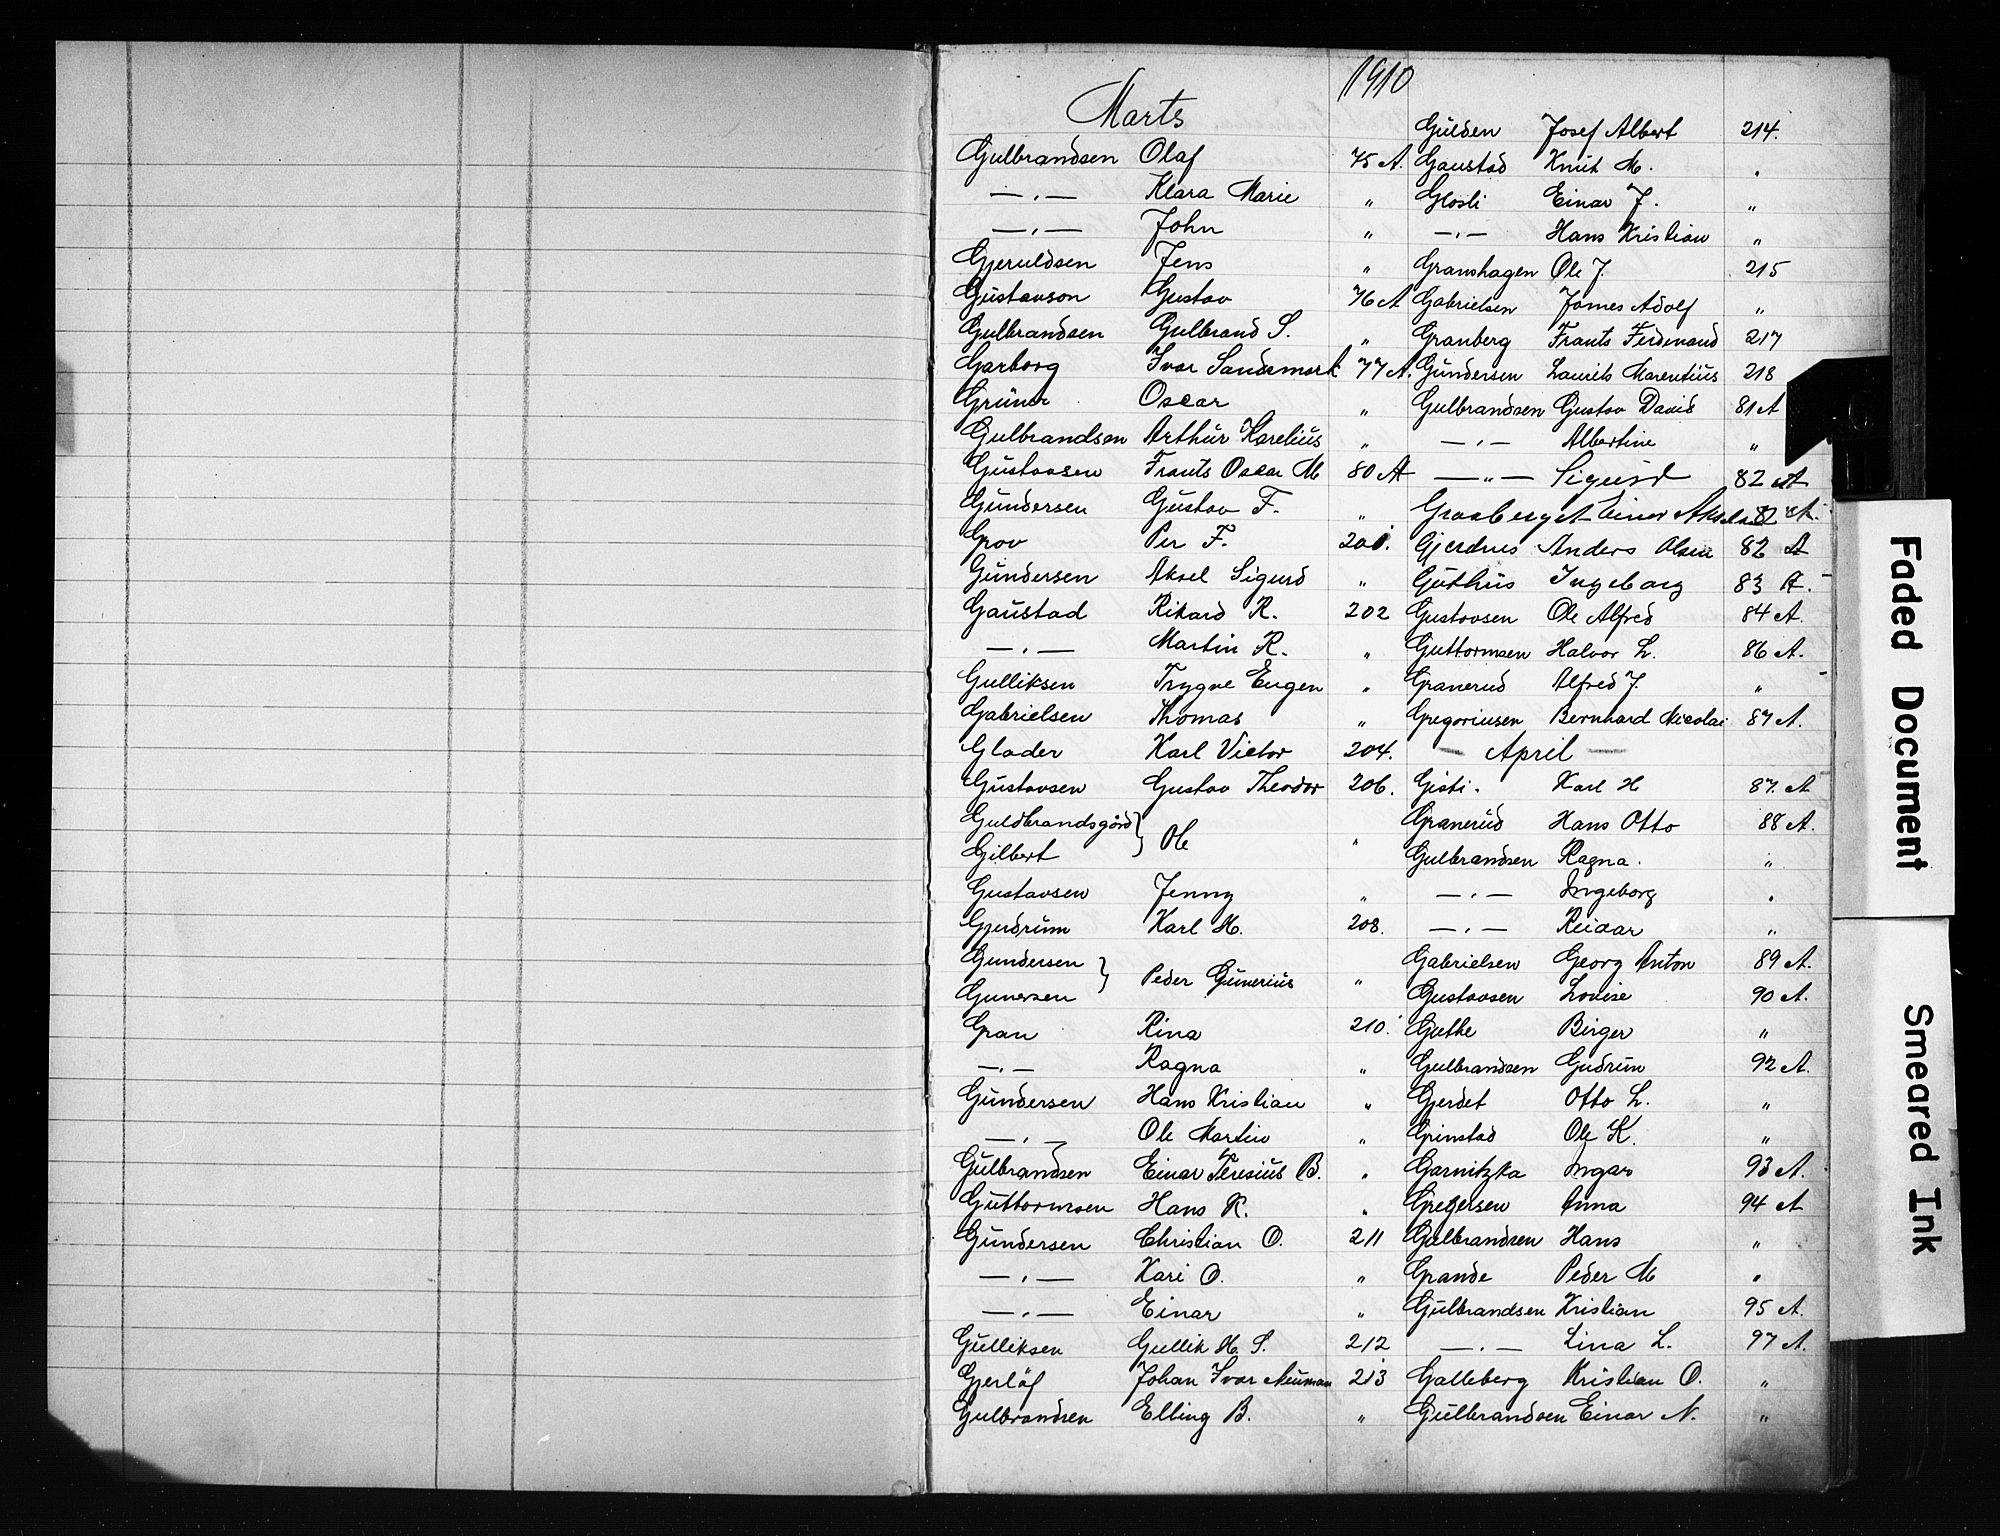 1910
Marts
Gulbrandsen Olaf 75 A.
— " — Klara Marie "
— " — John "
Gjeruldsen Jens "
Gustavson Gustav 76 A
Gulbrandsen Gulbrand S. "
Garborg Ivar Sandsmark 77 A.
Grüner Oscar "
Gulbrandsen Arthur Karelius "
Gustavsen Frants Oscar M 80 A
Gundersen Gustav F. "
Grov Per F. 201.
Gundersen Aksel Sigurd "
Gaustad Rikard R. 202
— " — Martin R. "
Gulliksen Trygve Eugen "
Gabrielsen Thomas "
Glader Karl Victor 204.
Gustavsen Gustav Theodor 206.
Guldbrandsgård }
Gilbert } Ole "
Gustavsen Jenny "
Gjerdrum Karl M. 208.
Gundersen }
Gunersen } Peder Gunerius "
Gran Rina 210.
— " — Ragna "
Gundersen Hans Kristian "
— " — Ole Martin "
Gulbrandsen Einar Teresius B. "
Guttormsen Hans R. "
Gundersen Christian O. 211
— " — Kari O. "
— " — Einar "
Gulliksen Gullik M. S. 212
Gjerløf Johan Ivar Neumann 213
Gulbrandsen Elling B. "
Gulden Josef Albert 214.
Gaustad Knut M. "
Glosli Einar J. "
— " — Hans Kristian "
Granshagen Ole J. 215
Gabrielsen James Adolf "
Granberg Frants Ferdinand 217
Gundersen Laurits Marentius 218
Gulbrandsen Gustav David 81 A
— " — Albertine "
— " — Sigurd 82 A
Graaberget Einer Aksel 82 A.
Gjerdnes Anders Olsen 82 A
Guthus Ingeborg 83 A.
Gustavsen Ole Alfred 84 A.
Guttormsen Halvor L. 86 A.
Granerud Alfred J. "
Gregoriusen Bernhard Nicolai 87 A.
— April —
Gisti. Karl H 87. A
Granerud Hans Otto 88 A.
Gulbrandsen Ragna. "
— " — Ingeborg "
— " — Reidar "
Gabrielsen Georg Anton 89 A.
Gustavsen Lovise 90 A.
Guthe Birger "
Gulbrandsen Gudrun 92 A.
Gjerdet Otto L. "
Grinstad Ole K. "
Garnitzka Ingar 93 A.
Gregersen Anna 94 A
Gulbrandsen Hans "
Grande Peder M "
Gulbrandsen Kristian 95 A.
— " — Lina L. 97 A.
Galleberg Kristian O. "
Gulbrandsen Einar N. "
Faded Document
Smeared Ink